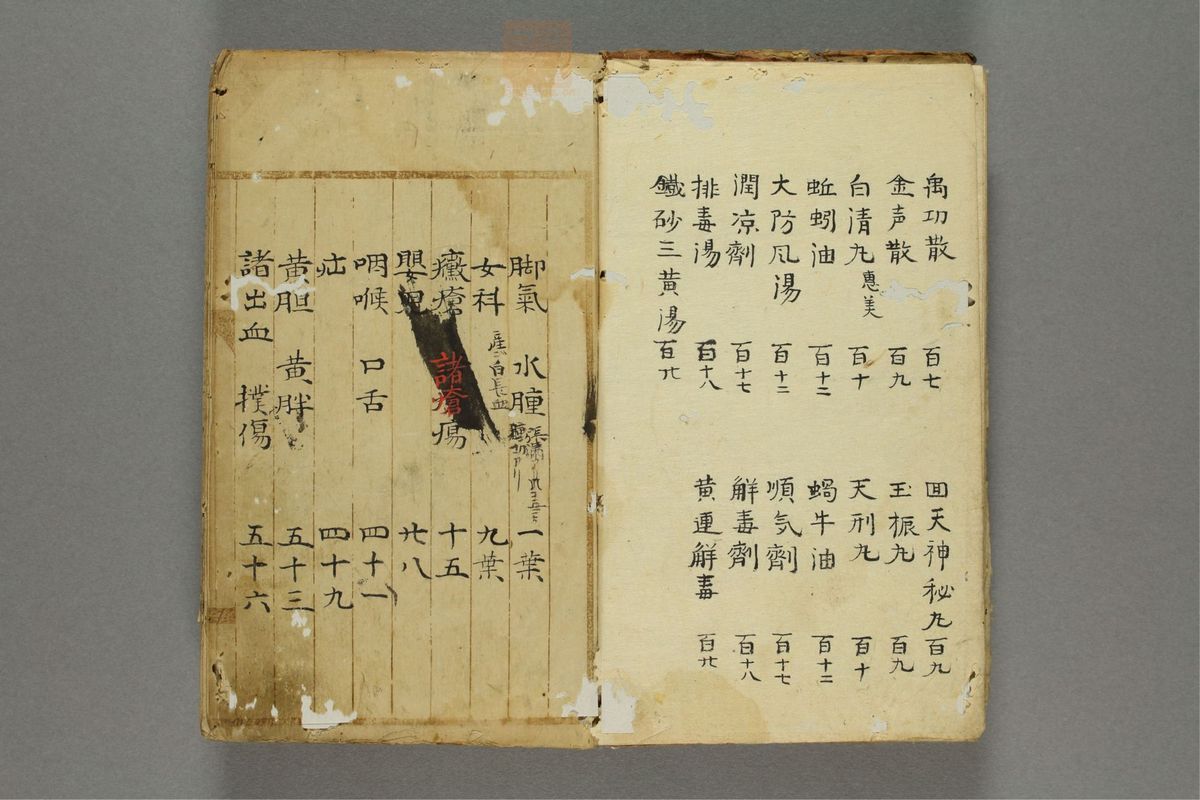 禹功散 百七
金声散 百九
白清丸 惠美 百十
蚯蚓油 百十二
大防凨湯 百十二
潤凉劑 百十七
排毒湯 百十八
鐵砂三黄湯 百廿
回天神秘丸 百九
玉振丸 百九
天刑丸 百十
蝸牛油 百十二
順気劑 百十七
解毒劑 百十八
黄連解毒 百廿
脚氣 水腫 一葉
女科 産 白 長血 九葉
癥瘡 諸瘡瘍 十五
嬰児 廿八
咽喉 口舌 四十一
疝 四十九
黄胆 黄胖 五十三
諸出血 撲傷 五十六